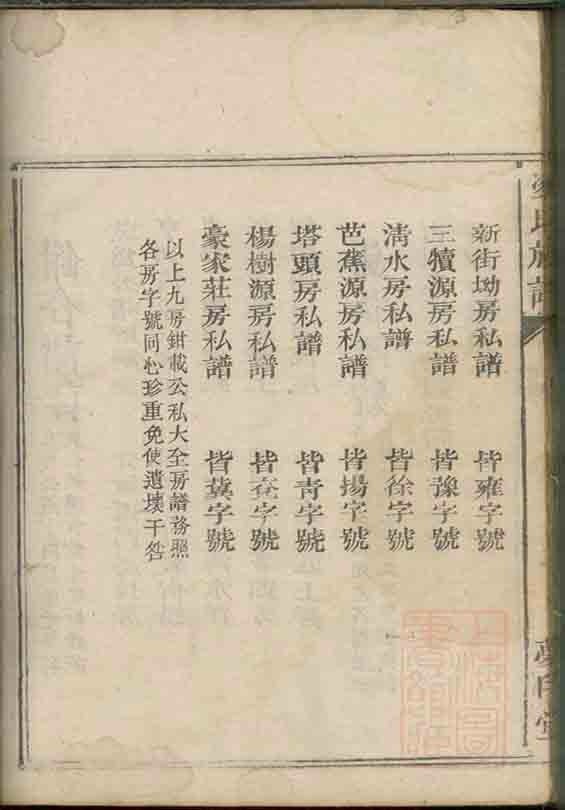 氏族譜
新街坳房私譜 皆雍字號
三犢源房私譜 皆豫字號
清水房私譜 皆徐字號
芭蕉源房私譜 皆揚字號
塔頭房私譜 皆青字號
楊樹源房私譜 皆兗字號
豪家莊房私譜 皆冀字號
以上九房鉗載公私大全房譜務照
各房字號同心珍重免使遺壞干咎
上海圖
書館藏